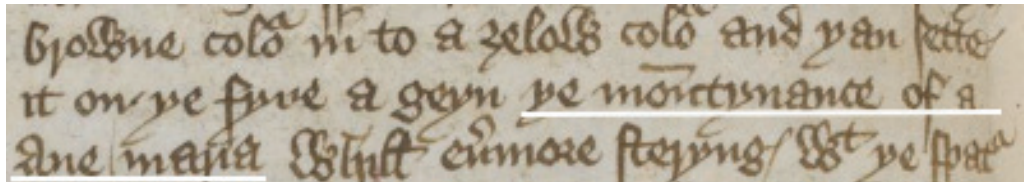 browne colō in to a ȝelow colō and yan sette
it on ye fyre a geyn ye mōntynance of a
Aue maria Whill eu̅more steryng / Wᵗ ye spat